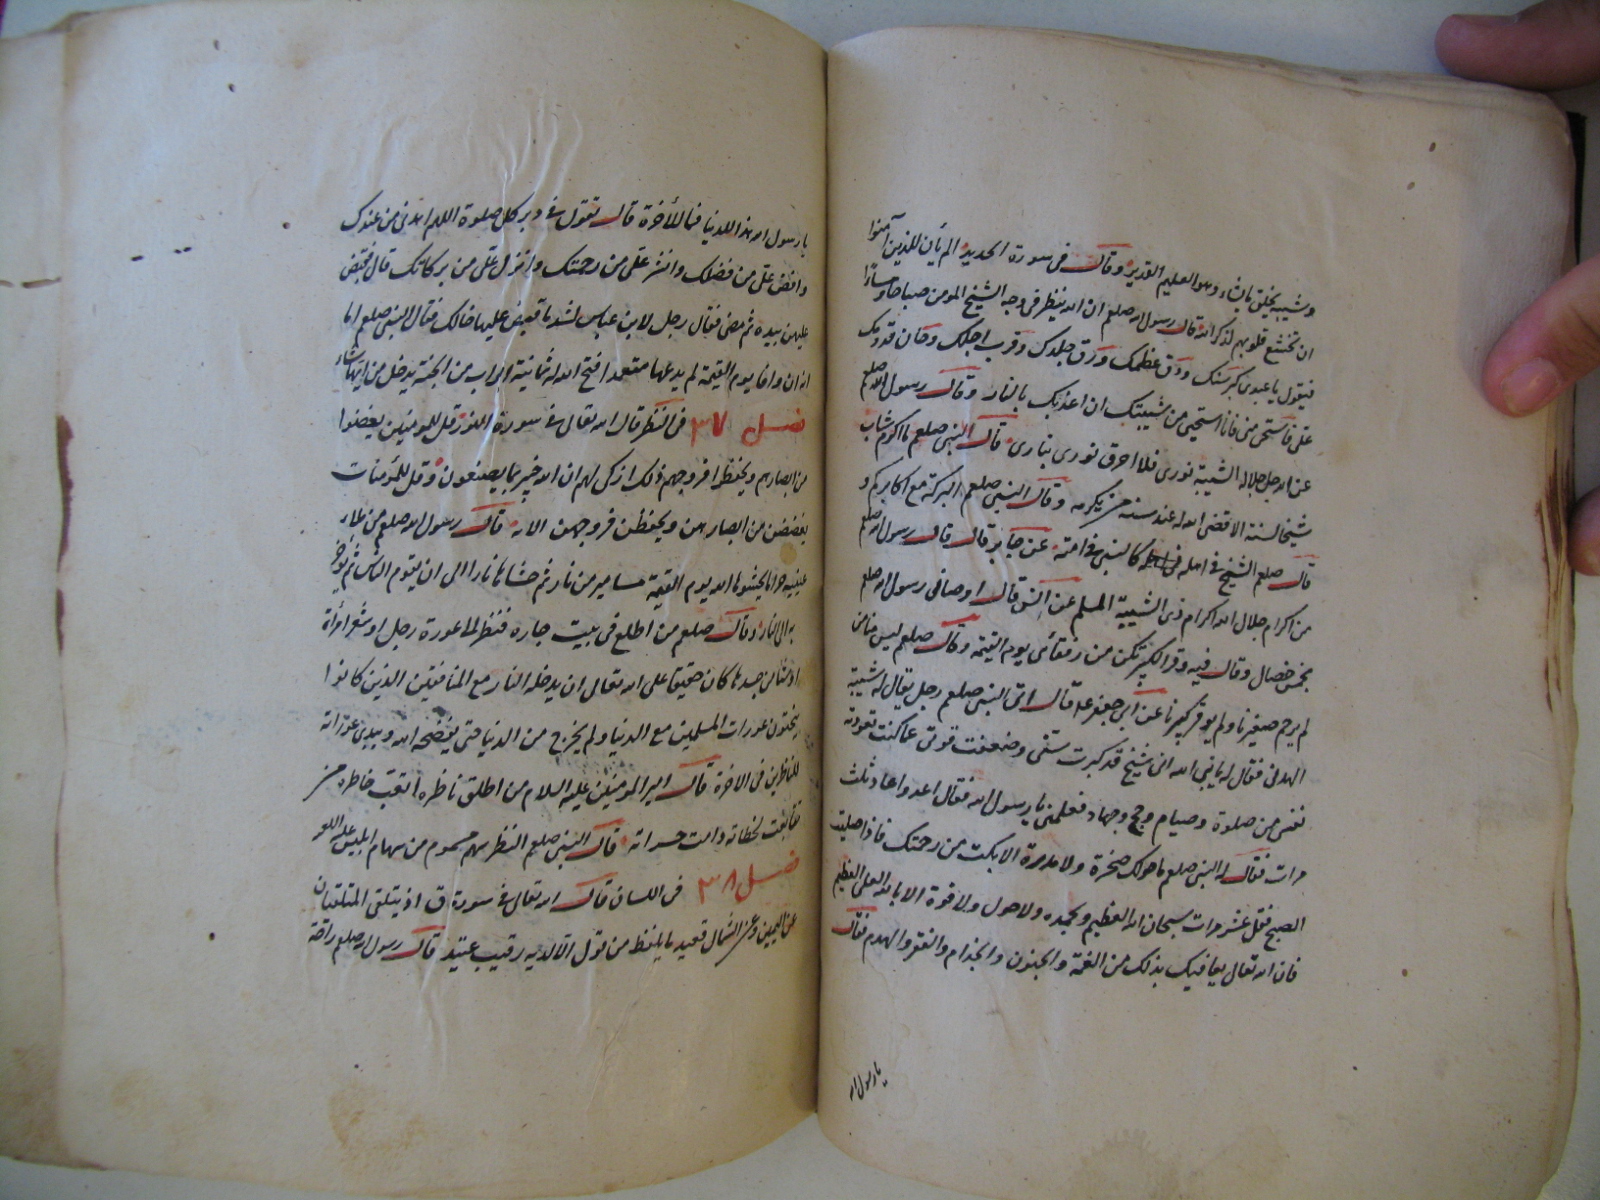 وشيبة يخلق ما يشاء وهو العليم القدير وقال في سورة الحديد الم يأن للذين آمنوا
ان تخشع قلوبهم لذكر الله قال رسول الله صلعم ان الله ينظر في وجه الشيخ المومن صباحا ومساءا
فيقول يا عبدي كبر سنك ودق عظمك ورق جلدك وقرب اجلك وحان قدومك
علي فاستحي مني فانا استحيي من شيبتك ان اعذبك بالنار وقال رسول الله صلعم
عن الله جل جلاله الشيبة نوري فلا احرق نوري بناري قال النبي صلعم ما اكرم شاب
شيخا لسنه الا قضى الله له عند سنه من يكرمه وقال النبي صلعم البركة مع اكابركم و
قال صلعم الشيخ في اهله كالنبي في امته عن جابر قال قال رسول الله صلعم
من اكرام جلال الله اكرام ذي الشيبة المسلم عن انس قال اوصاني رسول الله صلعم
بخمس خصال وقال فيه وقر الكبير تكن من رفقائي يوم القيمة وقال صلعم ليس منا من
لم يرحم صغيرنا ولم يوقر كبيرنا عن ابي جعفر ع قال اتى النبي صلعم رجل يقال له شيبة
الهذلي فقال له يا نبي الله اني شيخ قد كبرت سني وضعفت قوتي عما كنت تعودته
نفسي من صلوة وصيام وحج وجهاد فعلمني يا رسول الله فقال اعد واعاد ثلث
مرات فقال له النبي صلعم ما حولك صخرة ولا مدرة الا بكت من رحمتك فاذا صليت
الصبح فقل عشر مرات سبحان الله العظيم وبحمده ولا حول ولا قوة الا بالله العلي العظيم
فان الله تعالى يعافيك بذلك من الغمة والجنون والجذام والفقر والهدم فقال
يا رسول الله
يا رسول الله هذا للدنيا فما للأخرة قال تقول في دبر كل صلوة اللهم اهدني من عندك
وافض علي من فضلك وانشر علي من رحمتك وانزل علي من بركاتك قال فقبض
عليهن بيده ثم مضى فقال رجل لابن عباس لشد ما قبض عليها خالك فقال النبي صلعم اما
انه ان وافا يوم القيمة لم يدعها متعمدا فتح الله له ثمانية ابواب من الجنة يدخل من ايها شاء
فصل ٣٧ في النظر قال الله تعالى في سورة النور قل للمومنين يغضوا
من ابصارهم ويحفظوا فروجهم ذلك ازكى لهم ان الله خبير بما يصنعون وقل للمؤمنات
يغضضن من ابصارهن ويحفظن فروجهن الايه قال رسول الله صلعم من ملأ
عينيه حراما يحشوها الله يوم القيمة مسامير من نار ثم حشاها نارا الى ان يقوم الناس ثم يؤخر
به الى النار وقال صلعم من اطلع في بيت جاره فنظر الى عورة رجل او شعر امرأة
او شئ من جسدها كان حقيقا على الله تعالى ان يدخله النار مع المنافقين الذين كانوا
يبتغون عورات المسلمين مع الدنيا ولم يخرج من الدنيا حتى يفضحه الله ويبدي عوراته
للناظرين في الاخرة قال امير المومنين عليه السلام من اطلق ناظره اتعب خاطره من
تتابعت لحظاته دامت حسراته قال النبي صلعم النظر سهم مسموم من سهام ابليس
فصل ٣٨ في اللسان قال الله تعالى في سورة ق اذ يتلقى المتلقيان
عن اليمين وعن الشمال قعيد ما يلفظ من قول الا لديه رقيب عتيد قال رسول الله صلعم راحة